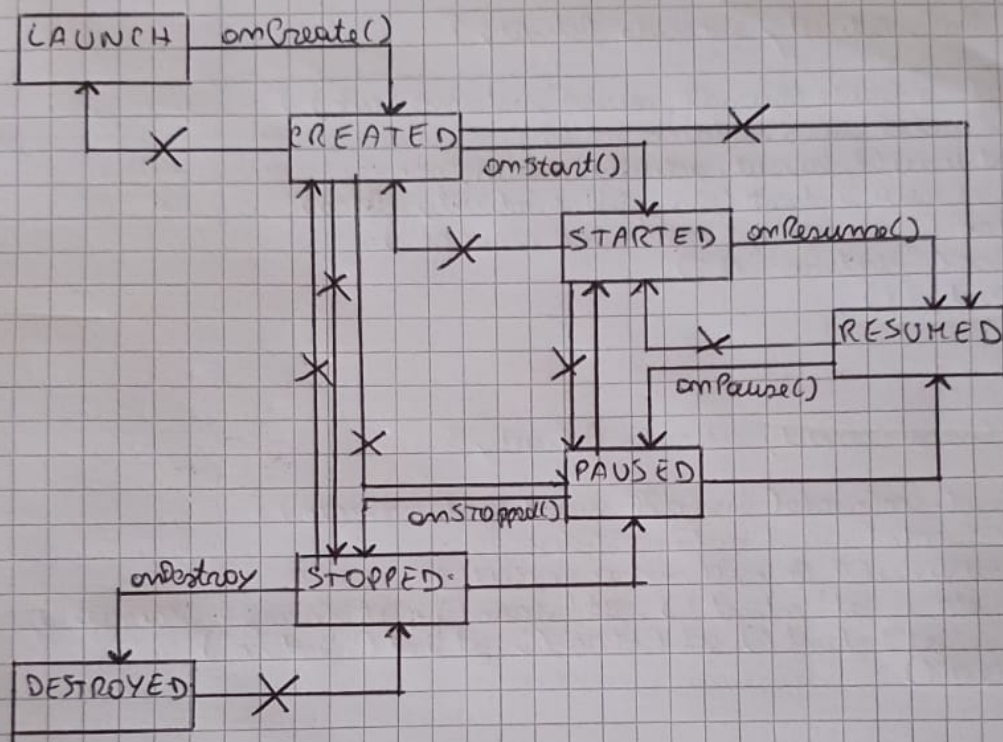 LAUNCH
onCreate()
CREATED
onStart()
STARTED
onResume()
RESUMED
onPause()
PAUSED
onStopped()
STOPPED
onDestroy
DESTROYED